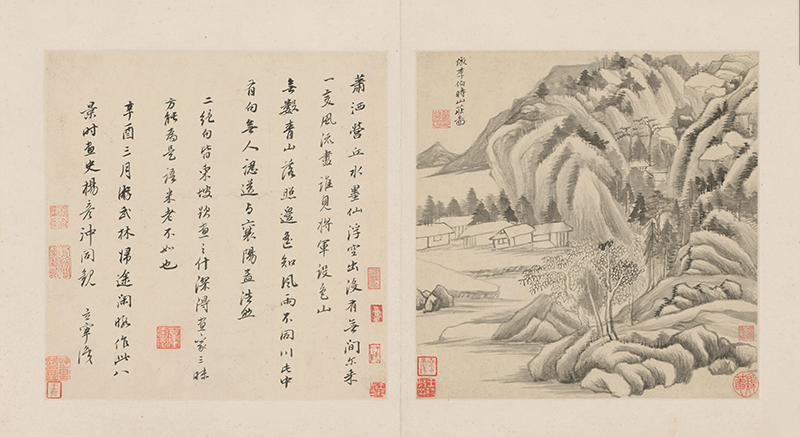 倣李伯時山莊圖
蕭洒營丘水墨仙浮空出沒有無間尔來
一變風流盡誰見將軍設色山
無數青山落照邊遙知風雨不同川此中
有句無人認送與襄陽孟浩然
二絕句皆東坡跋畫之什深得畫家三昧
方能為是語米老不如也
辛酉三月游武林歸途閑暇作此八
景時畫史楊彥沖同觀 玄宰識